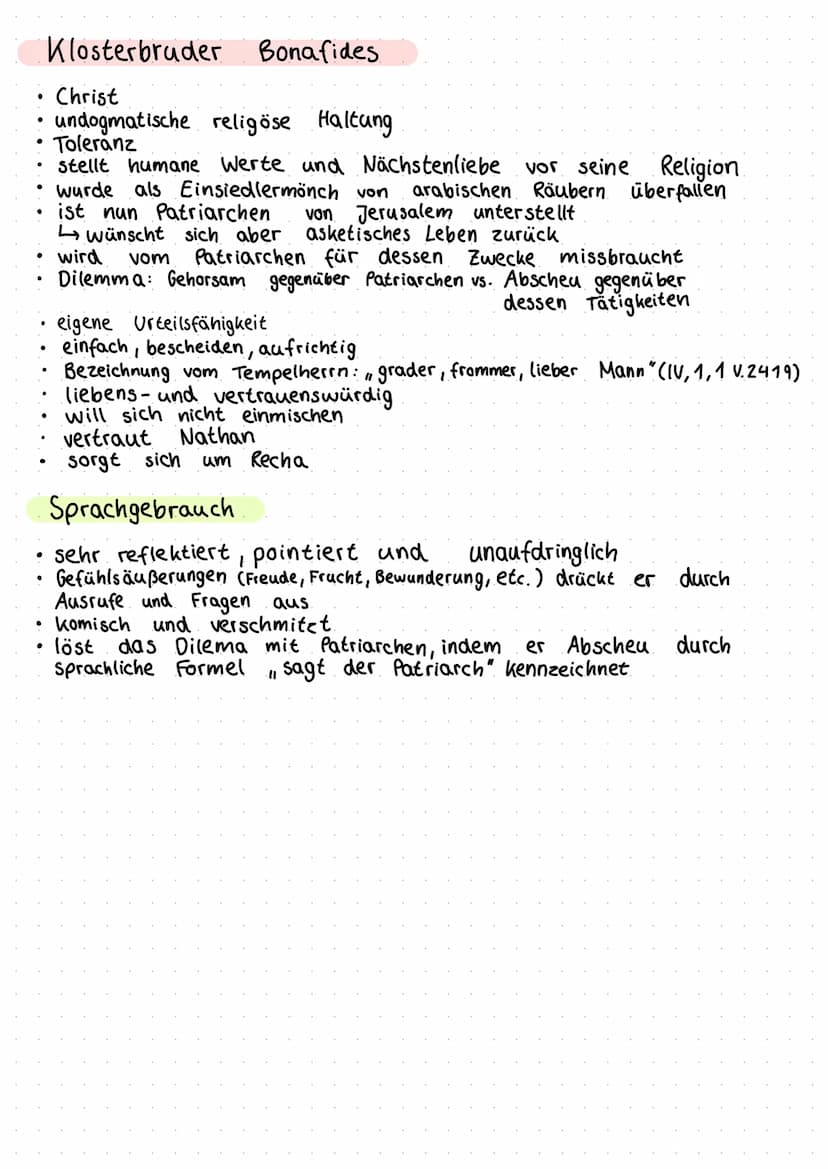 Klosterbruder Bonafides
• Christ
• undogmatische religöse Haltung
• Toleranz
• stellt humane Werte und Nächstenliebe vor seine Religion
• wurde als Einsiedlermönch von arabischen Räubern überfallen
• ist nun Patriarchen von Jerusalem unterstellt
↳ wünscht sich aber asketisches Leben zurück
• wird vom Patriarchen für dessen Zwecke missbraucht
• Dilemma: Gehorsam gegenüber Patriarchen vs. Abscheu gegenüber
dessen Tätigkeiten
• eigene Urteilsfähigkeit
• einfach, bescheiden, aufrichtig
• Bezeichnung vom Tempelherrn: „grader, frommer, lieber Mann" (IV, 1, 1 V. 2419)
• liebens- und vertrauenswürdig
• will sich nicht einmischen
• vertraut Nathan
• sorgt sich um Recha
Sprachgebrauch
• sehr reflektiert, pointiert und unaufdringlich
• Gefühlsäußerungen (Freude, Frucht, Bewunderung, etc.) drückt er durch
Ausrufe und Fragen aus
• komisch und verschmitzt
• löst das Dilema mit Patriarchen, indem er Abscheu durch
sprachliche Formel „sagt der Patriarch" kennzeichnet